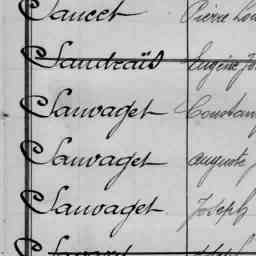 Saucet Pierre Lou
Saudrais Eugène Jo
Sauvaget Constan
Sauvaget Auguste
Sauvaget Joseph